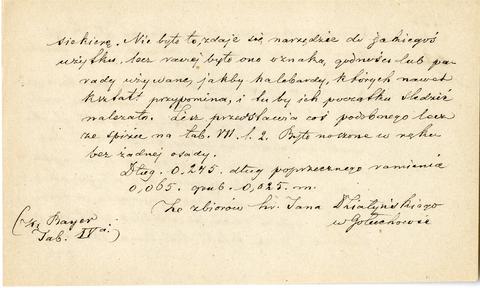 siekierę. Nie było to, zdaje się narzędzie do jakiegoś
użytku, lecz raczej było ono oznaką godności lub pa-
rady używane, jakby halabardy, których nawet
kształt przypomina, i tu by ich początku śledzić
należało. Lisz przedstawia coś podobnego lecz
ze spiżu na tab. VII f. 2. Było noszone w ręku
bez żadnej osady.
Dług. 0,245. dług poprzecznego ramienia
0,065. grub. 0,025. m.
Ze zbiorów hr. Jana Działyńskiego
w Gołuchowie
Bayer
Tab. IV a.)